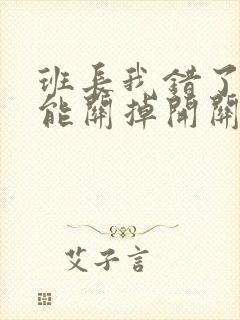 班长我错了
能關掉開關
艾子言